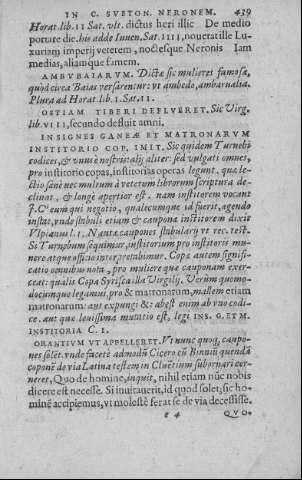 IN C. SVETON. NERONEM. 439
Horat. lib. 11 Sat. vlt. dictus heri illic De medio
portare die. his adde Iuuen. Sat. IIII, nouerat ille Lu-
xuriam imperij veterem, noctesque Neronis Iam
medias, aliamque famem.
AMBVBAIARVM. Dictæ sic mulieres famosæ,
quòd circa Baias versarentur: vt ambedo, ambarualia.
Plura ad Horat. lib. I. Sat. II.
OSTIAM TIBERI DEFLVERET. Sic Virg.
lib. VIII, secundo defluit amni.
INSIGNES GANEAE ET MATRONARVM
INSTITORIO COP. IMIT. Sic quidem Turnebi
codices, & nunc nostri alij aliter: sed vulgati omnes,
pro institorio copas, institorias operas legunt. quæ le-
ctio sanè nec multum à veterum librorum scriptura de-
clinat, & longè apertior est. nam institorem vocant
qui negotio, qualecunque id fuerit, agendo
instat, vnde stabuli etiam & cauponæ institorem dixit
Vlpianus l. I. Nautæ caupones stabulary vt rec. rest.
Si Turnebum sequimur, institorium pro institoris mu-
nere atque officio interpretabimur. Copa autem signifi-
catio omnibus nota, pro muliere quæ cauponam exer-
ceat: qualis Copa Syrisca illa Virgilij. Verùm quomo-
documque legamus, pro & matronarum, mallem etiam
matronarum: aut expungi &: abest enim ab vno codi-
ce. aut quæ leuissima mutatio est, legi INS. G. ET M.
INSTITORIA C. I.
ORANTIVM VT APPELLERET. Vt nunc quoq, caupo-
nes solet. vnde facetè admodũ Cicero cũ Binniũ quendã
coponẽ de via Latina testem in Cluẽtium subornari cer-
neret, Quo de homine, inquit, nihil etiam nũc nobis
dicere est necesse. Si inuitauerit, id quod solet, sic ho-
minẽ accipiemus, vt molestè ferat se de via decessisse.
e 4 QVO-